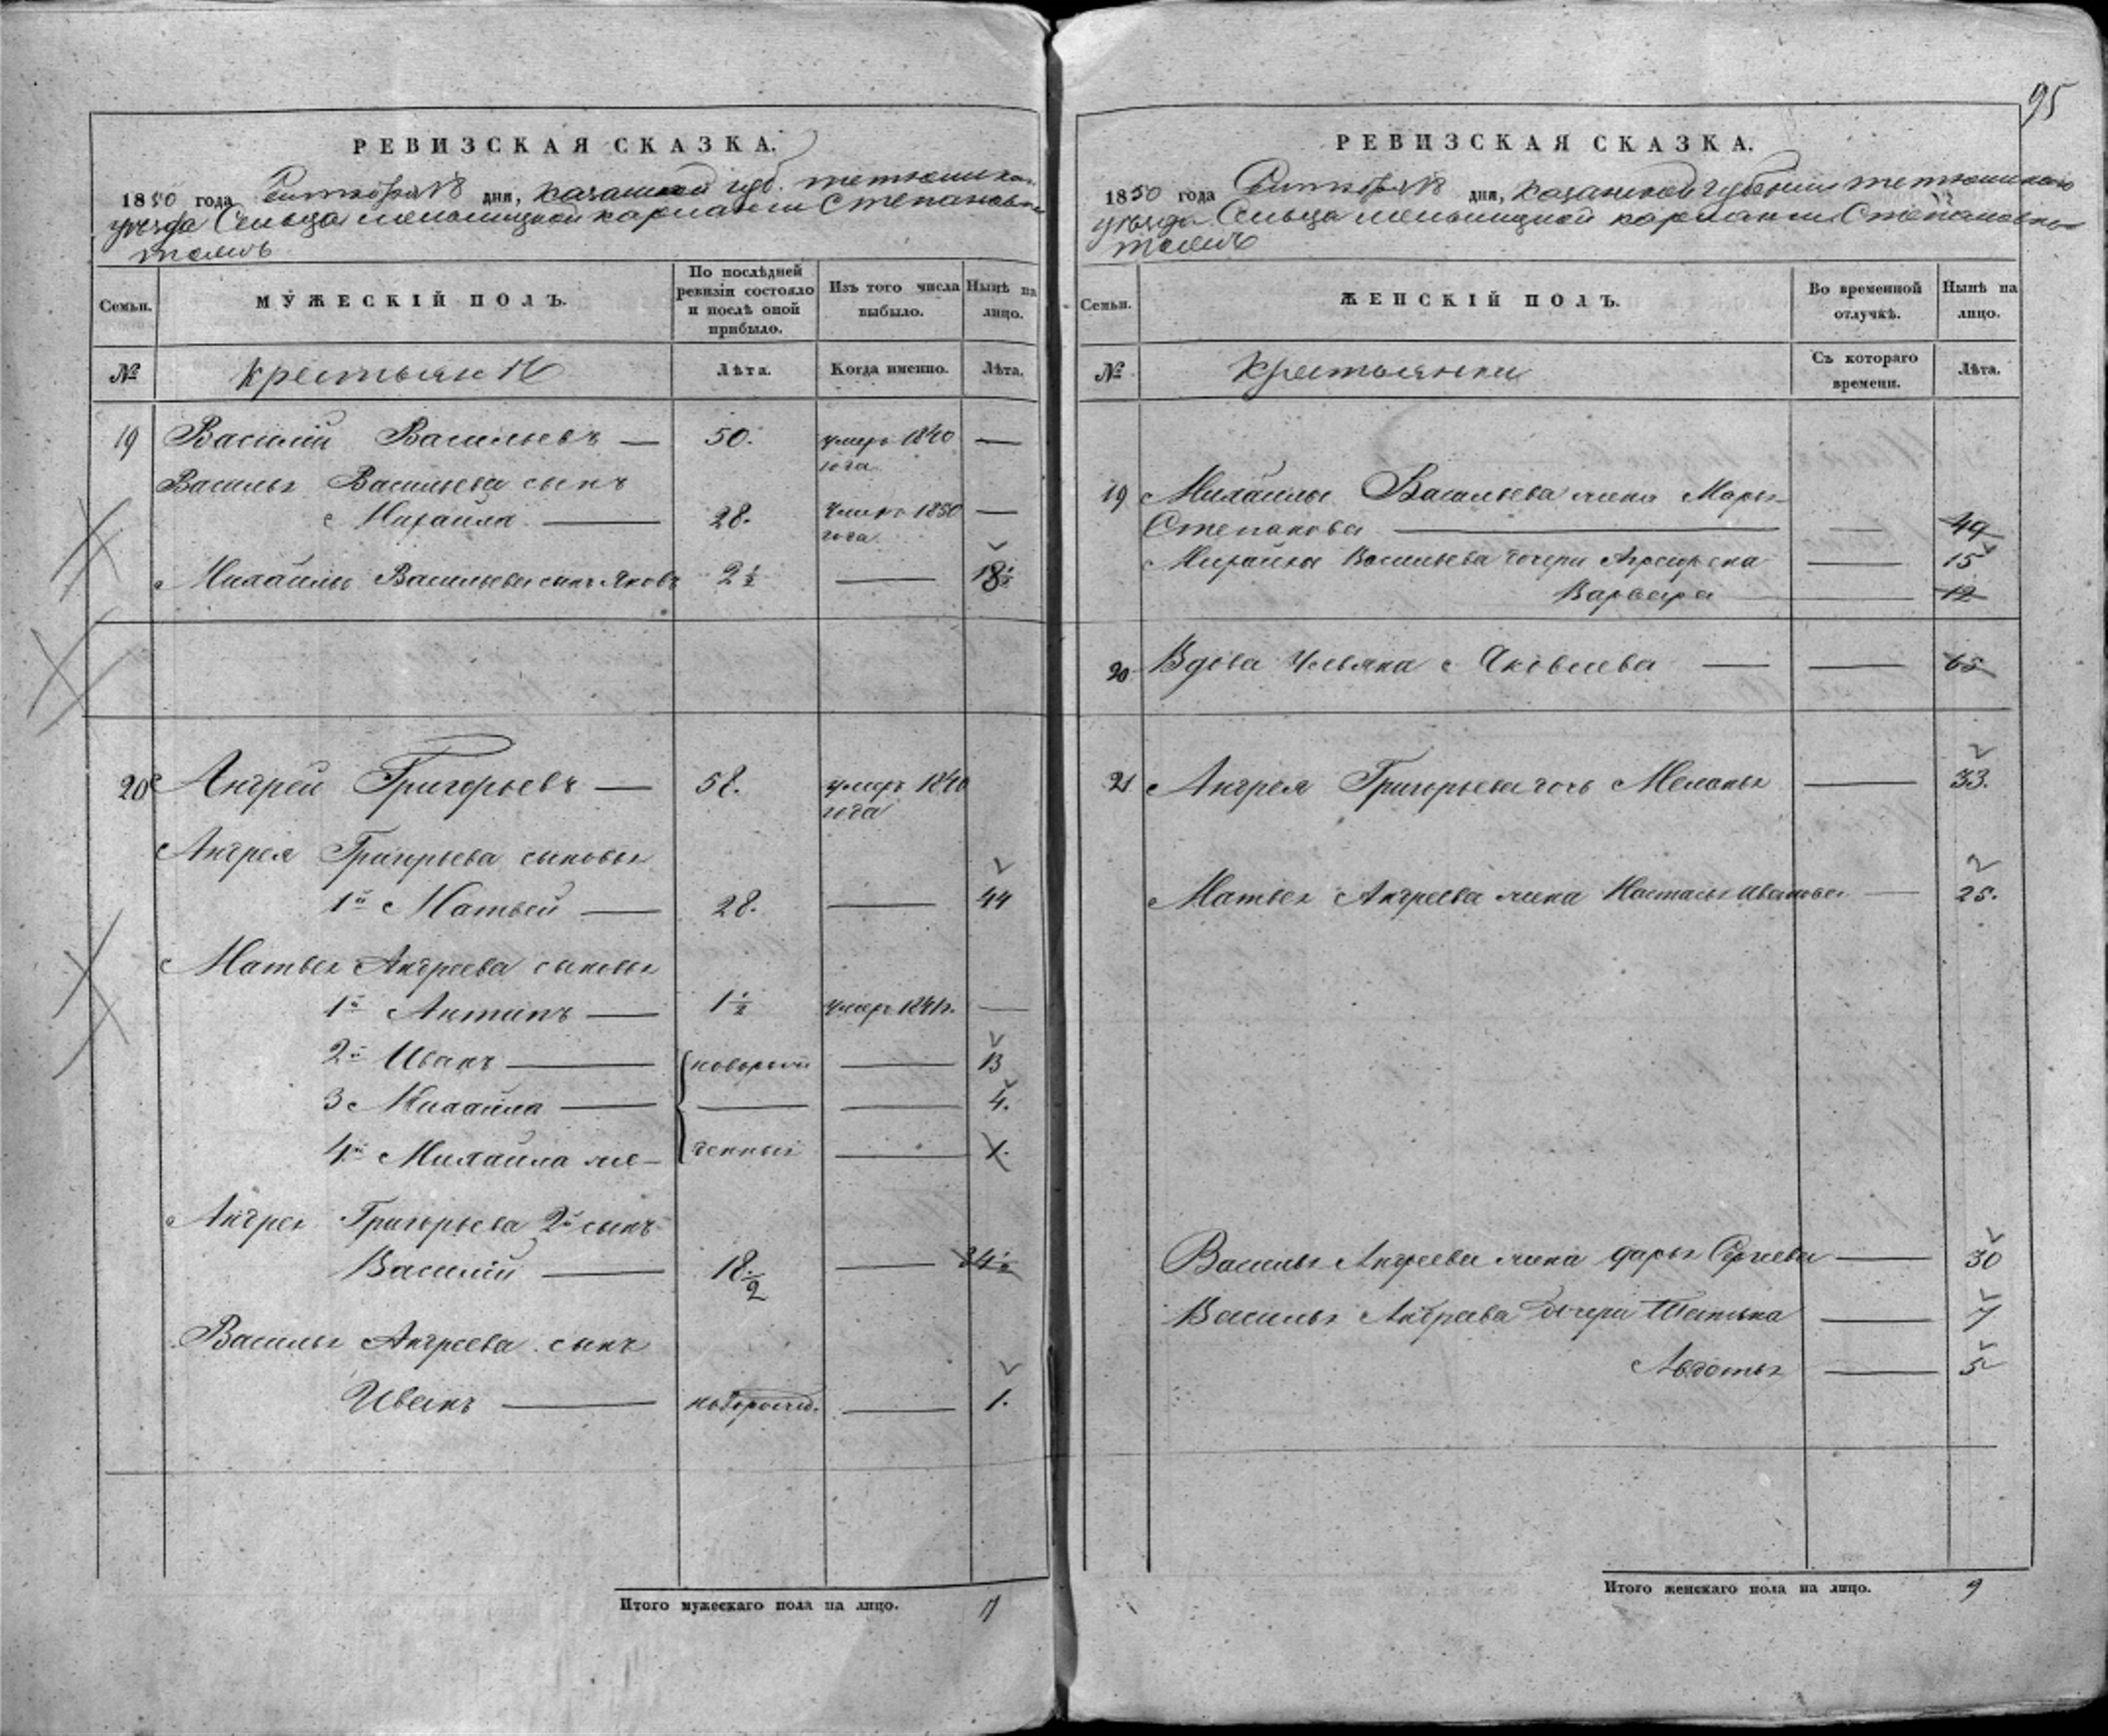 95
РЕВИЗСКАЯ СКАЗКА.
1850 года Сентября 18 дня, Казанской губ. Тетюшска
уезда Сельца Мельницкой Карланги Степановка
томъ
Семьи. МУЖЕСКІЙ ПОЛЪ. По послѣдней ревизіи состояло и послѣ оной прибыло. Изъ того числа выбыло. Нынѣ на лицо.
№ Крестьяне Лѣта. Когда именно. Лѣта.
19 Василій Васильевъ — 50. умеръ 1840 года —
Василья Васильева сынъ
Михайла — 28. Умеръ 1850 года —
Михайлы Васильева сынъ Яковъ 2 1/2 — 18 1/2
20 Андрей Григорьевъ — 58. умеръ 1840 года
Андрея Григорьева сыновья
1й Матвей — 28. — 44
Матвея Андреева сыновья
1й Антипъ — 1 1/2 умеръ 1841 г. —
2й Иванъ — новорож — 13
3 Михайла — — — 4.
4й Михайла же — денныя — 1.
Андрея Григорьева 2й сынъ
Василій — 18 1/2 — 34 1/2
Василья Андреева сынъ
Иванъ — новорожд. — 1.
Итого мужескаго пола на лицо. 7
РЕВИЗСКАЯ СКАЗКА.
1850 года Сентября 18 дня, Казанской губернии Тетюшскаго
уезда Сельца Мельницкой Карланги Степановка
томъ
Семьи. ЖЕНСКІЙ ПОЛЪ. Во временной отлучкѣ. Нынѣ на лицо.
№ Крестьянки Съ котораго времени. Лѣта.
19 Михайлы Васильева жена Марья
Степанова — — 49
Михайлы Васильева дочери — 15
Варвара — 12
20 Вдова Ульяна Яковлева — — 65
21 Андрея Григорьева дочь Меланья — 33.
Матвея Андреева жена Настасья Иванова — 25.
Василья Андреева жена Дарья Сергеева — 30
Василья Андреева дочери Татьяна — 7
Авдотья — 5
Итого женскаго пола на лицо. 9